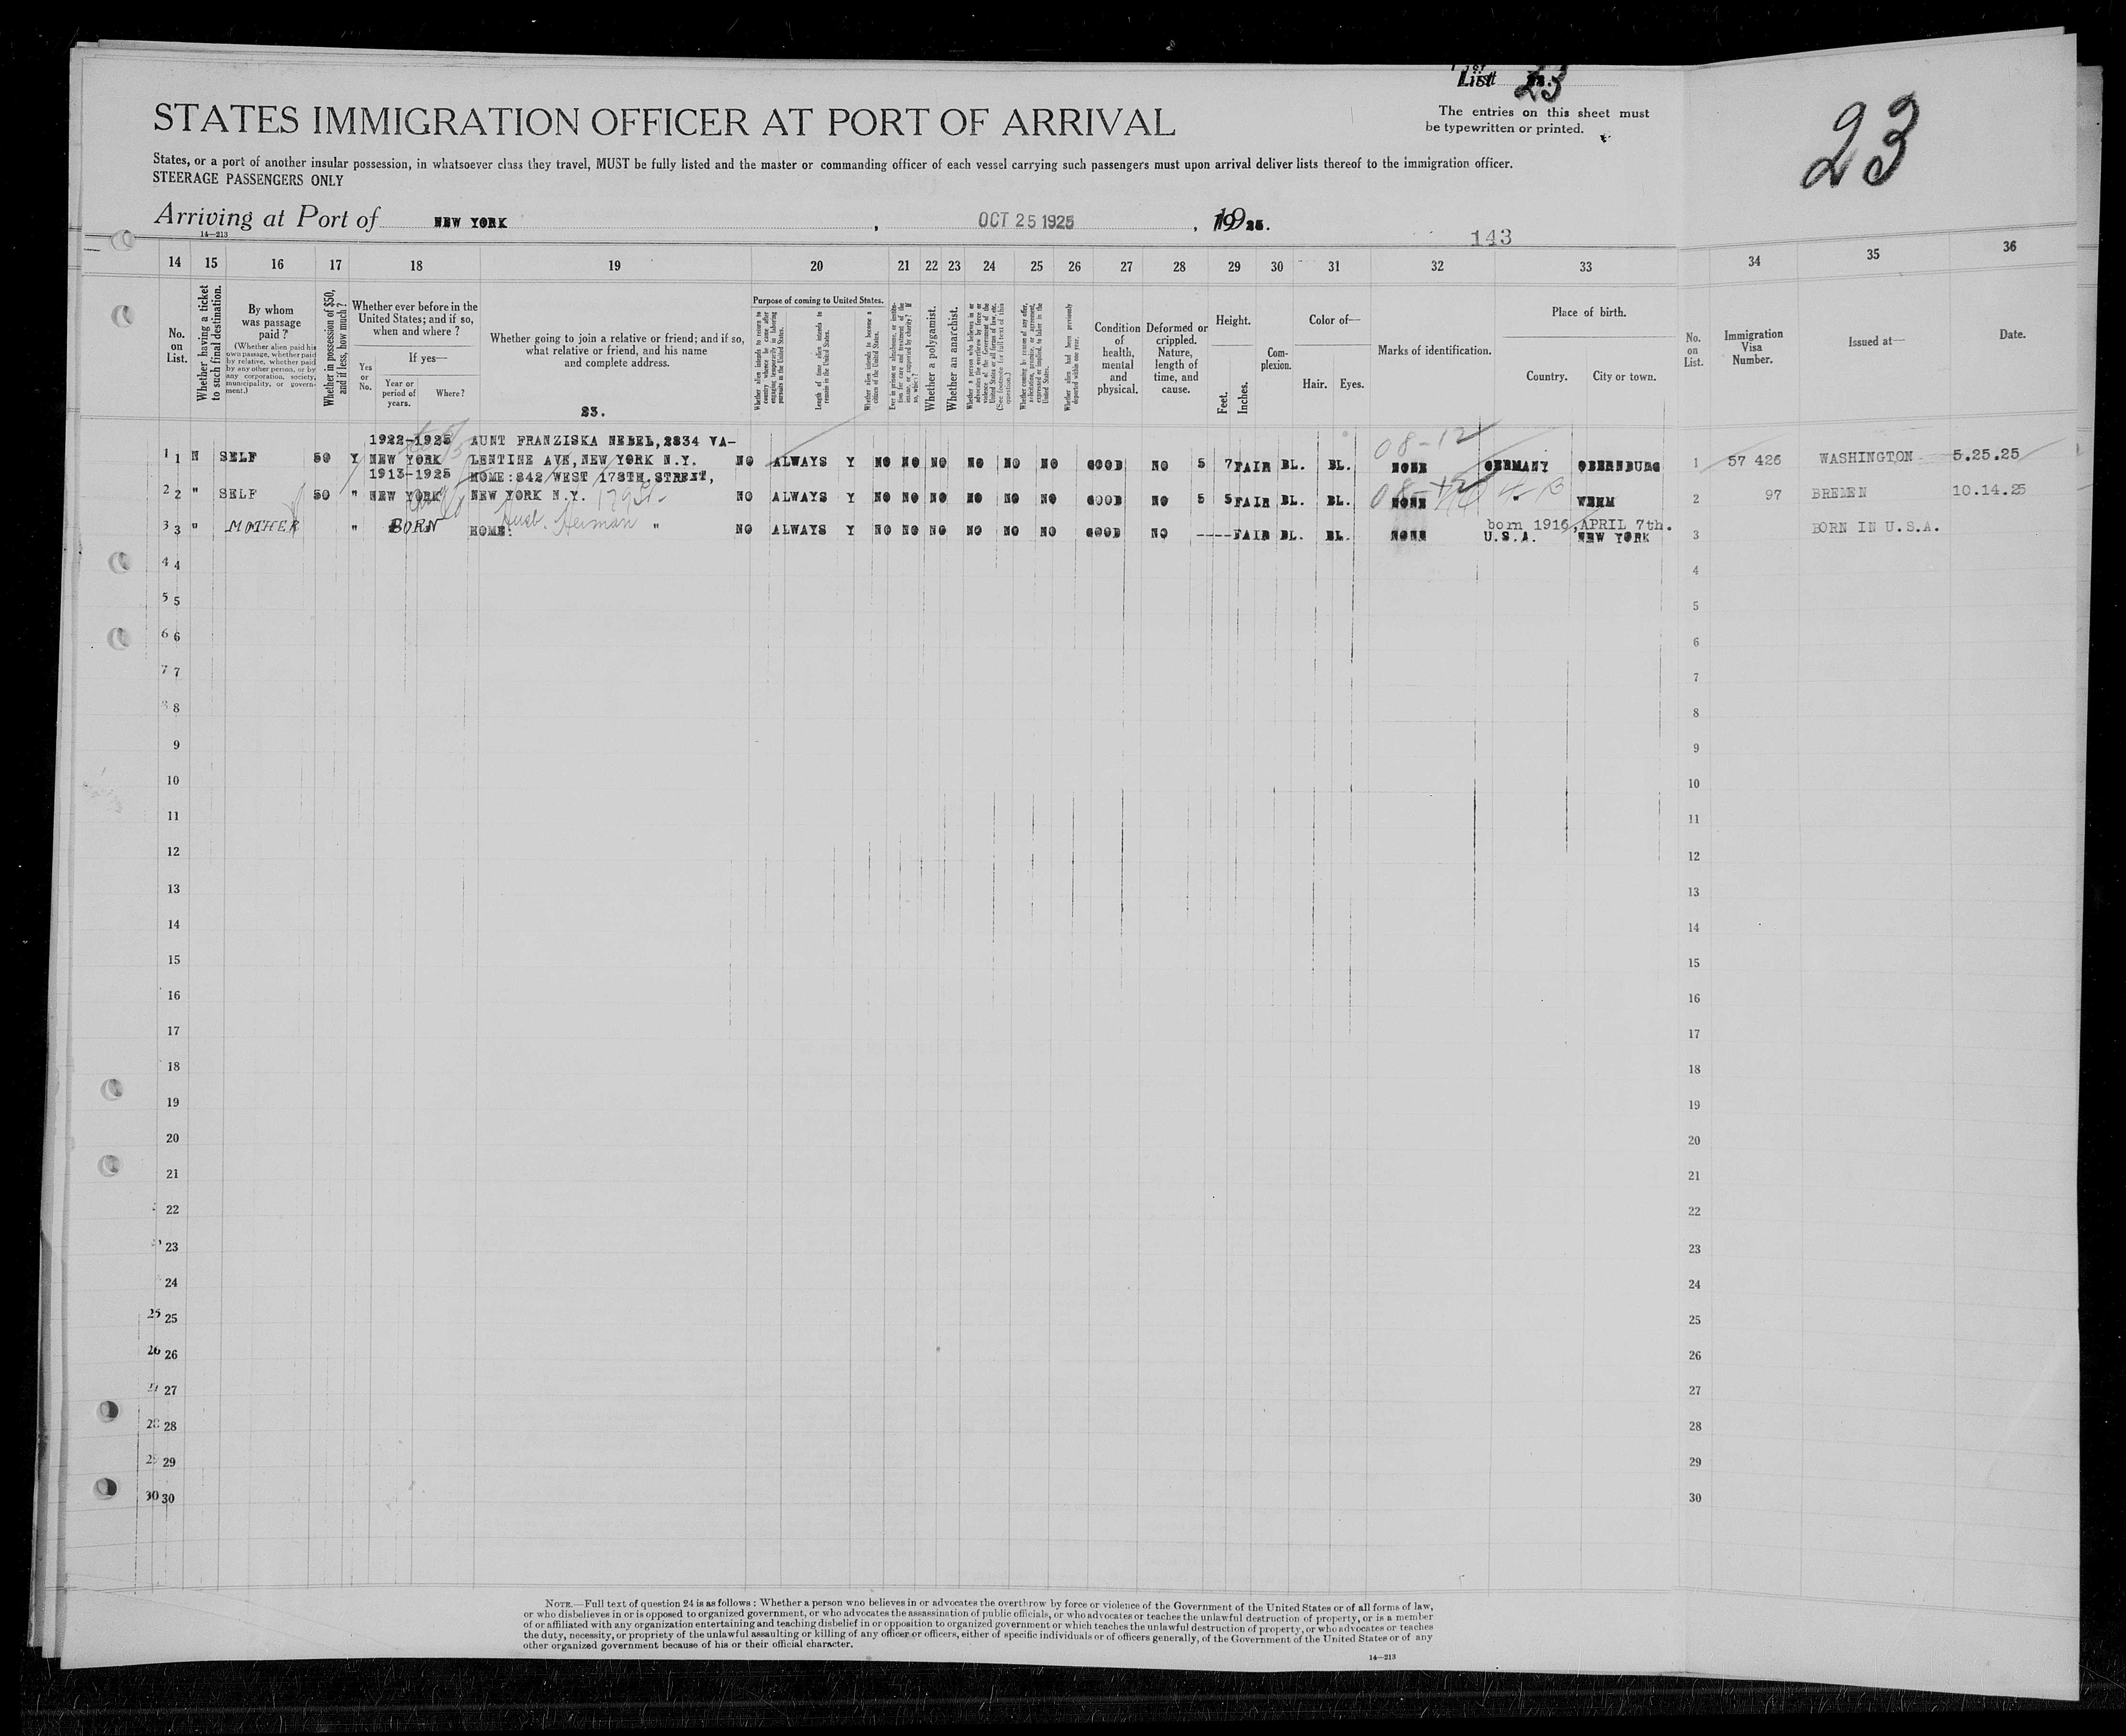 List 23
The entries on this sheet must
be typewritten or printed.
23
STATES IMMIGRATION OFFICER AT PORT OF ARRIVAL
States, or a port of another insular possession, in whatsoever class they travel, MUST be fully listed and the master or commanding officer of each vessel carrying such passengers must upon arrival deliver lists thereof to the immigration officer.
STEERAGE PASSENGERS ONLY
Arriving at Port of NEW YORK, OCT 25 1925, 1925.
14—213
143
14 15 16 17 18 19 20 21 22 23 24 25 26 27 28 29 30 31 32 33 34 35 36
No. on List.
Whether having a ticket to such final destination.
By whom was passage paid?
(Whether alien paid his own passage, whether paid by relative, whether paid by any other person, or by any corporation, society, municipality, or government.)
Whether in possession of $50, and if less, how much?
Whether ever before in the United States; and if so, when and where?
Yes or No.
If yes—
Year or period of years.
Where?
Whether going to join a relative or friend; and if so, what relative or friend, and his name and complete address.
23.
Purpose of coming to United States.
Whether alien intends to return to country whence he came after engaging temporarily in laboring pursuits in the United States.
Length of time alien intends to remain in the United States.
Whether alien intends to become a citizen of the United States.
Ever in prison or almshouse, or institution for care and treatment of the insane, or supported by charity? If so, which?
Whether a polygamist.
Whether an anarchist.
Whether a person who believes in or advocates the overthrow by force or violence of the Government of the United States or all forms of law, etc. (See footnote for full text of this question.)
Whether coming by reason of any offer, solicitation, promise, or agreement, expressed or implied, to labor in the United States.
Whether alien had been previously deported within one year.
Condition of health, mental and physical.
Deformed or crippled. Nature, length of time, and cause.
Height.
Feet. Inches.
Complexion.
Color of—
Hair. Eyes.
Marks of identification.
Place of birth.
Country. City or town.
No. on List.
Immigration Visa Number.
Issued at—
Date.
1922-1925 AUNT FRANZISKA NEBEL, 2834 VA-
08-12
1 1 N SELF 50 Y NEW YORK LENTINE AVE, NEW YORK N.Y. NO ALWAYS Y NO NO NO NO NO NO GOOD NO 5 7 FAIR BL. BL. NONE GERMANY OBERNBURG 1 57 426 WASHINGTON 5.25.25
1913-1925 HOME: 842 WEST 178TH. STREET,
2 2 " SELF 50 " NEW YORK NEW YORK N.Y. NO ALWAYS Y NO NO NO NO NO NO GOOD NO 5 5 FAIR BL. BL. NONE " WEHM 2 97 BREMEN 10.14.25
Husb. Herman
born 1916, APRIL 7th.
3 3 " MOTHER " BORN HOME: " NO ALWAYS Y NO NO NO NO NO NO GOOD NO ---- FAIR BL. BL. NONE U.S.A. NEW YORK 3 BORN IN U.S.A.
4 4 4
5 5 5
6 6 6
7 7 7
8 8 8
9 9
10 10
11 11
12 12
13 13
14 14
15 15
16 16
17 17
18 18
19 19
20 20
21 21
22 22
23 23
24 24
25 25 25
26 26 26
27 27 27
28 28 28
29 29 29
30 30 30
NOTE.—Full text of question 24 is as follows: Whether a person who believes in or advocates the overthrow by force or violence of the Government of the United States or of all forms of law,
or who disbelieves in or is opposed to organized government, or who advocates the assassination of public officials, or who advocates or teaches the unlawful destruction of property, or is a member
of or affiliated with any organization entertaining and teaching disbelief in or opposition to organized government or which teaches the unlawful destruction of property, or who advocates or teaches
the duty, necessity, or propriety of the unlawful assaulting or killing of any officer or officers, either of specific individuals or of officers generally, of the Government of the United States or of any
other organized government because of his or their official character.
14—213